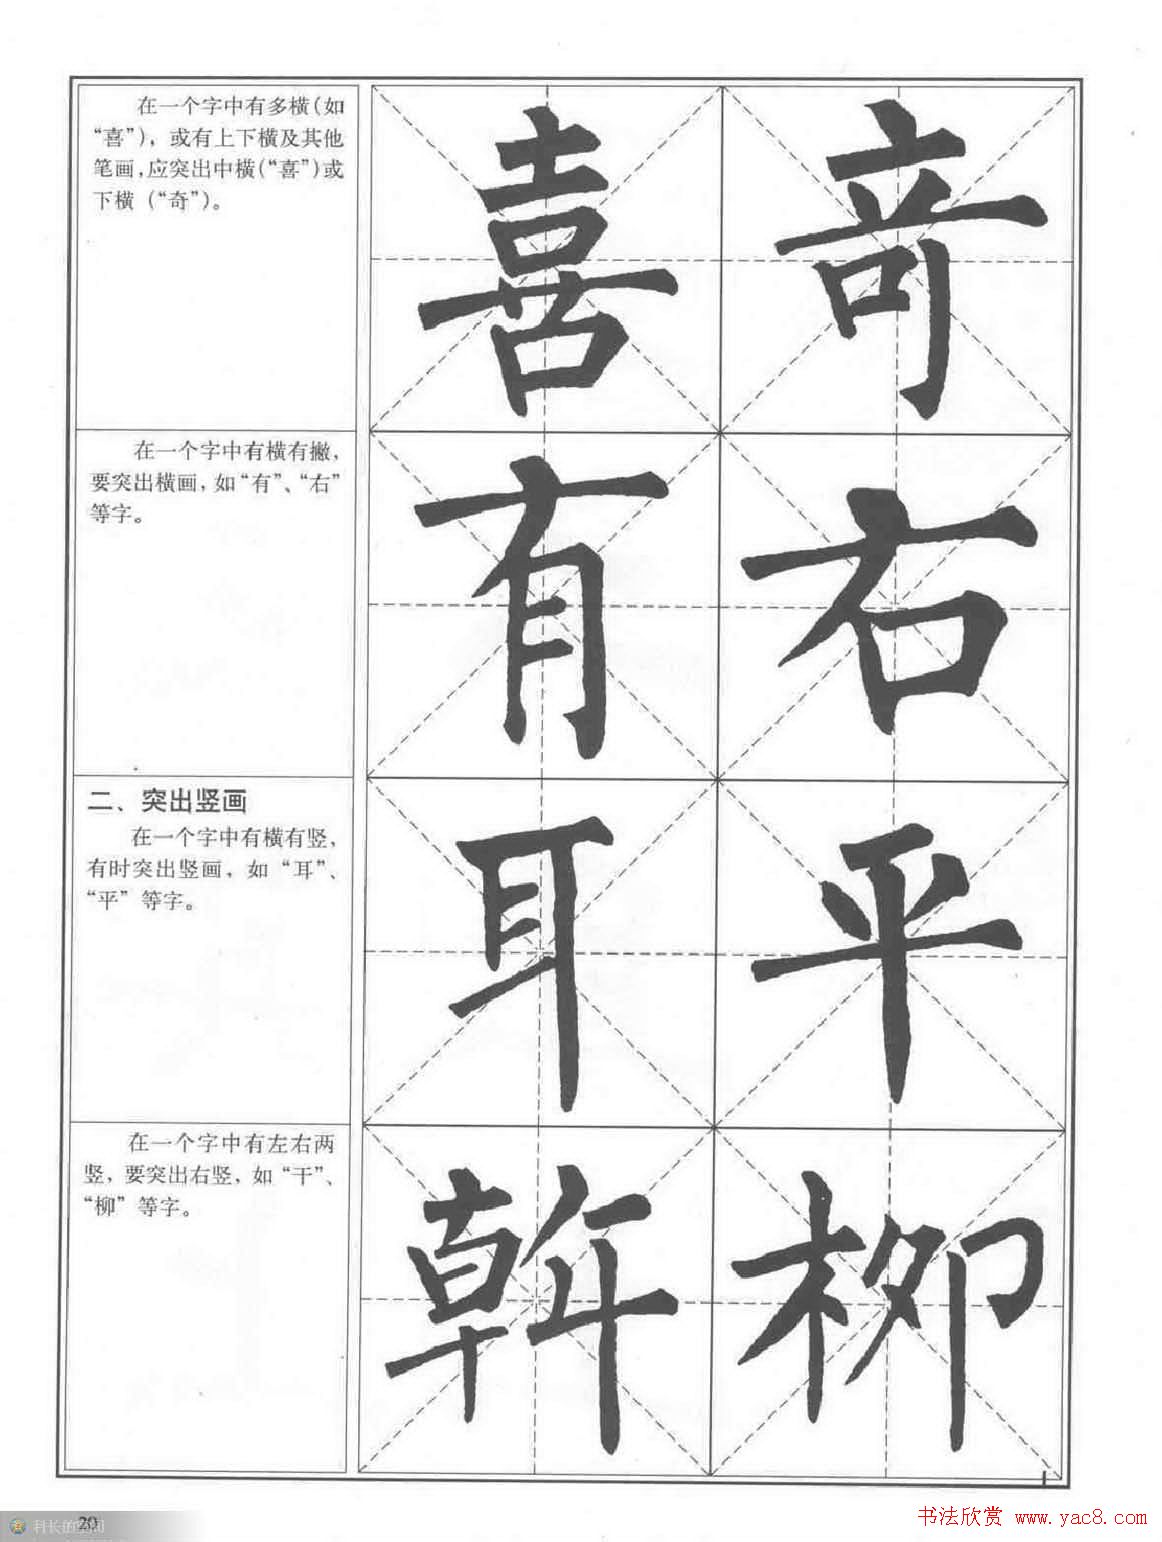 在一个字中有多横（如
“喜”），或有上下横及其他
笔画，应突出中横（“喜”）或
下横（“奇”）。
喜 奇
在一个字中有横有撇，
要突出横画，如“有”、“右”
等字。
有 右
二、突出竖画
在一个字中有横有竖，
有时突出竖画，如“耳”、
“平”等字。
耳 平
在一个字中有左右两
竖，要突出右竖，如“干”、
“柳”等字。
幹 柳
20
科长的空间
书法欣赏 www.yac8.com